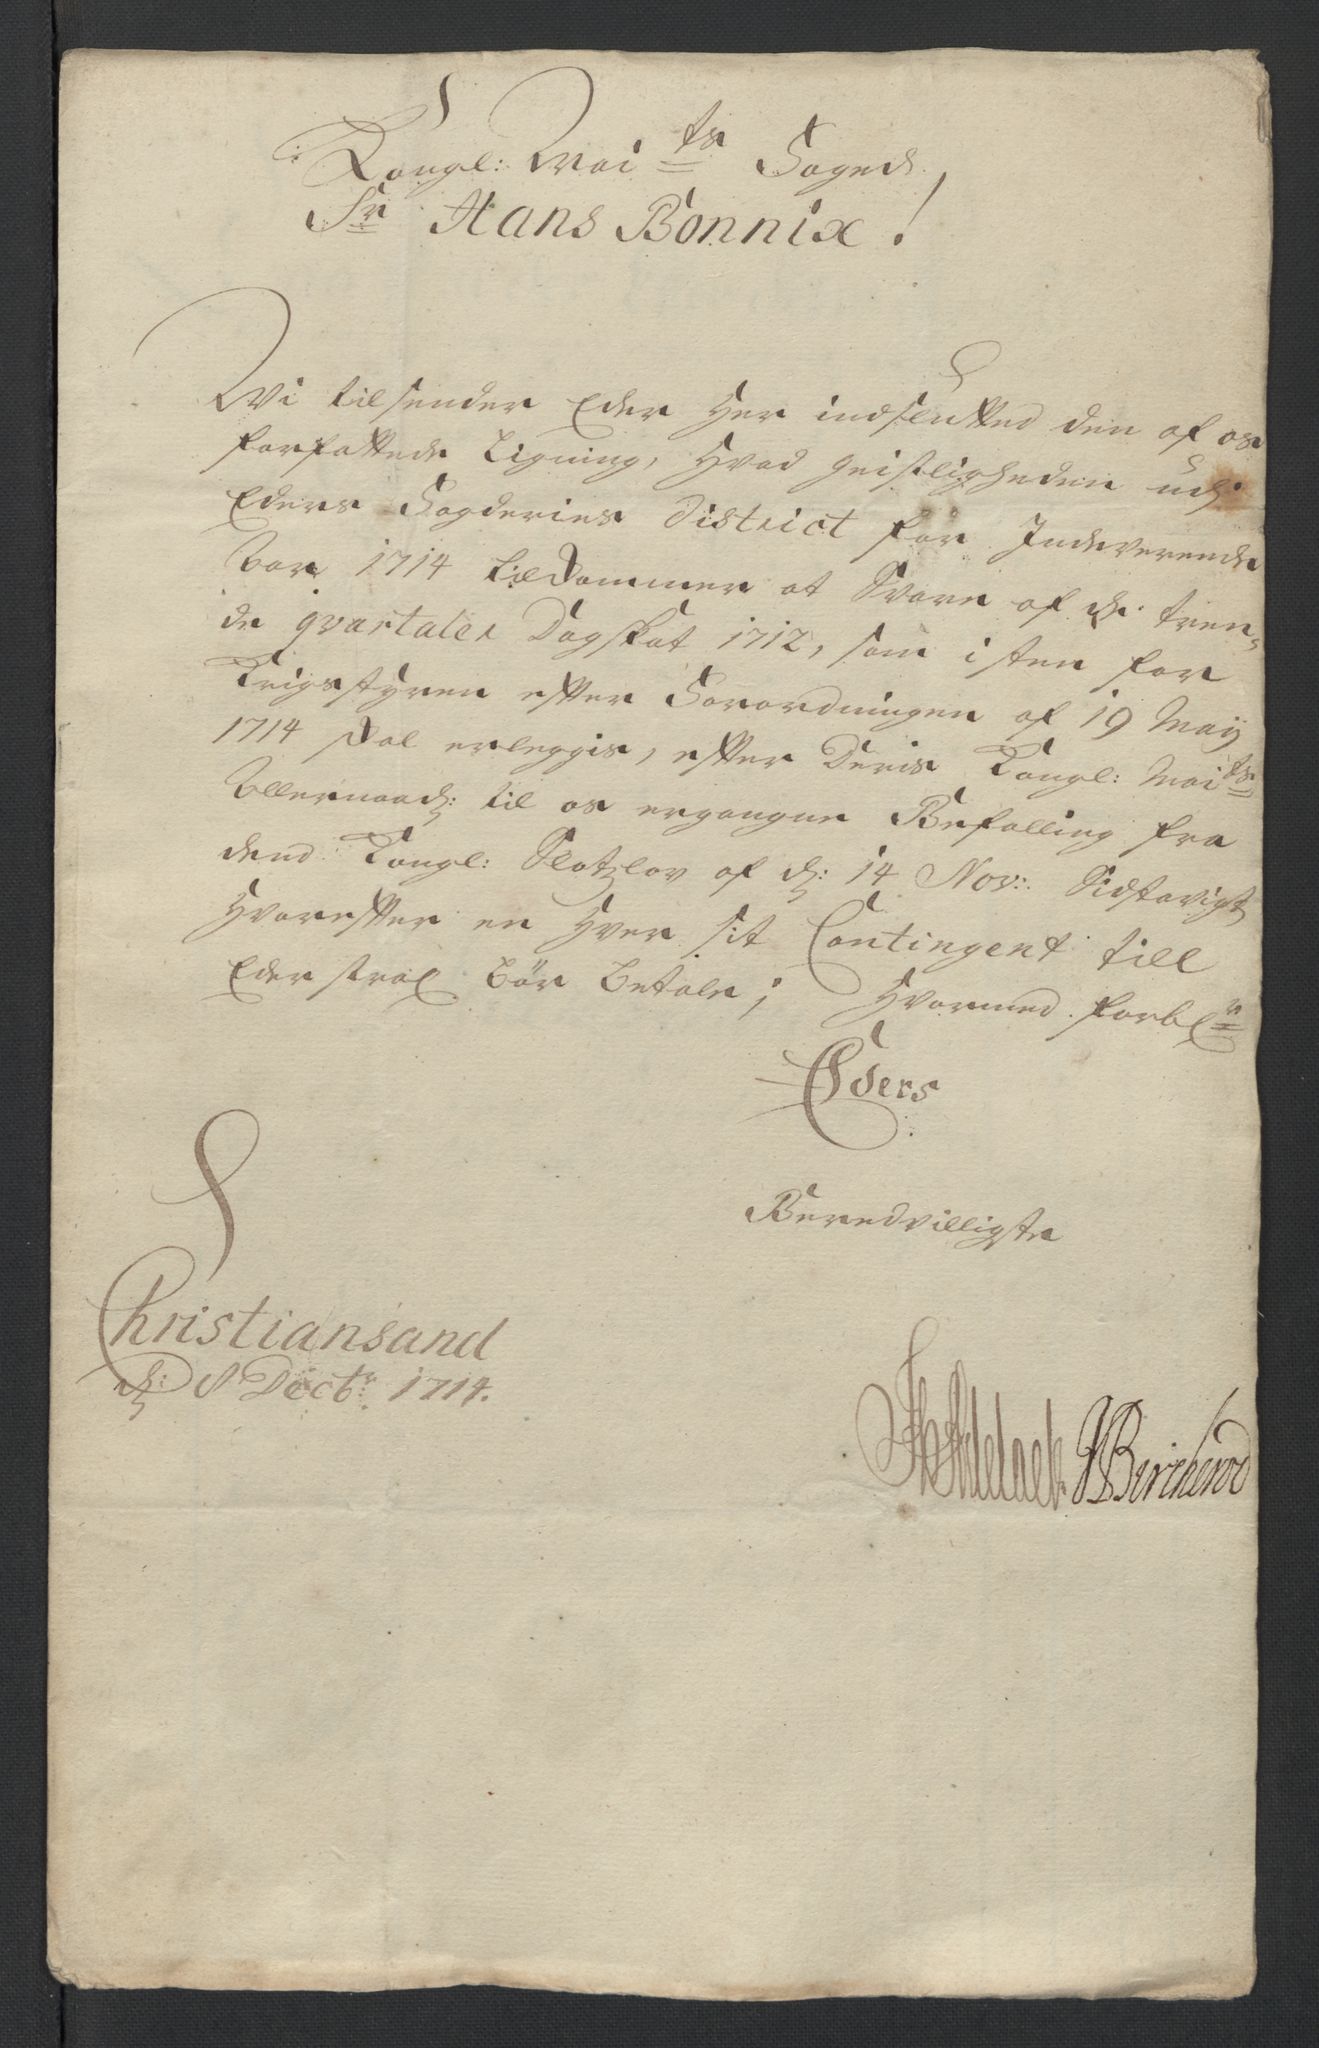 Kongl: Mai<sup>ts</sup> Foged,
Sr Hans Bonnix!
Wi tilsender Eder her indslutted den af os
forfattede Ligning, hvad geistligheden udj
Eders Fogderies District for Indeverende
Aar 1714 tilkommer at Svare af de tren-
de qvartaler Dagskat 1712, som isten for
Krigsstyren efter Forordningen af 19 Maij
1714 skal erleggis, efter Deris Kongl: Mai<sup>ts</sup>
Allernaad: til os ergangne Befalling fra
dend Kongl: Slotzlov af d: 14 Nov: Sidstavigt,
hvorefter en hver sit Contingent till
Eder strax bör betale; hvormed forbl<sup>r</sup>
Eders
Beredvilligste
Christiansand
d: 8 Dectr. 1714.
Adelaer. JBircherod